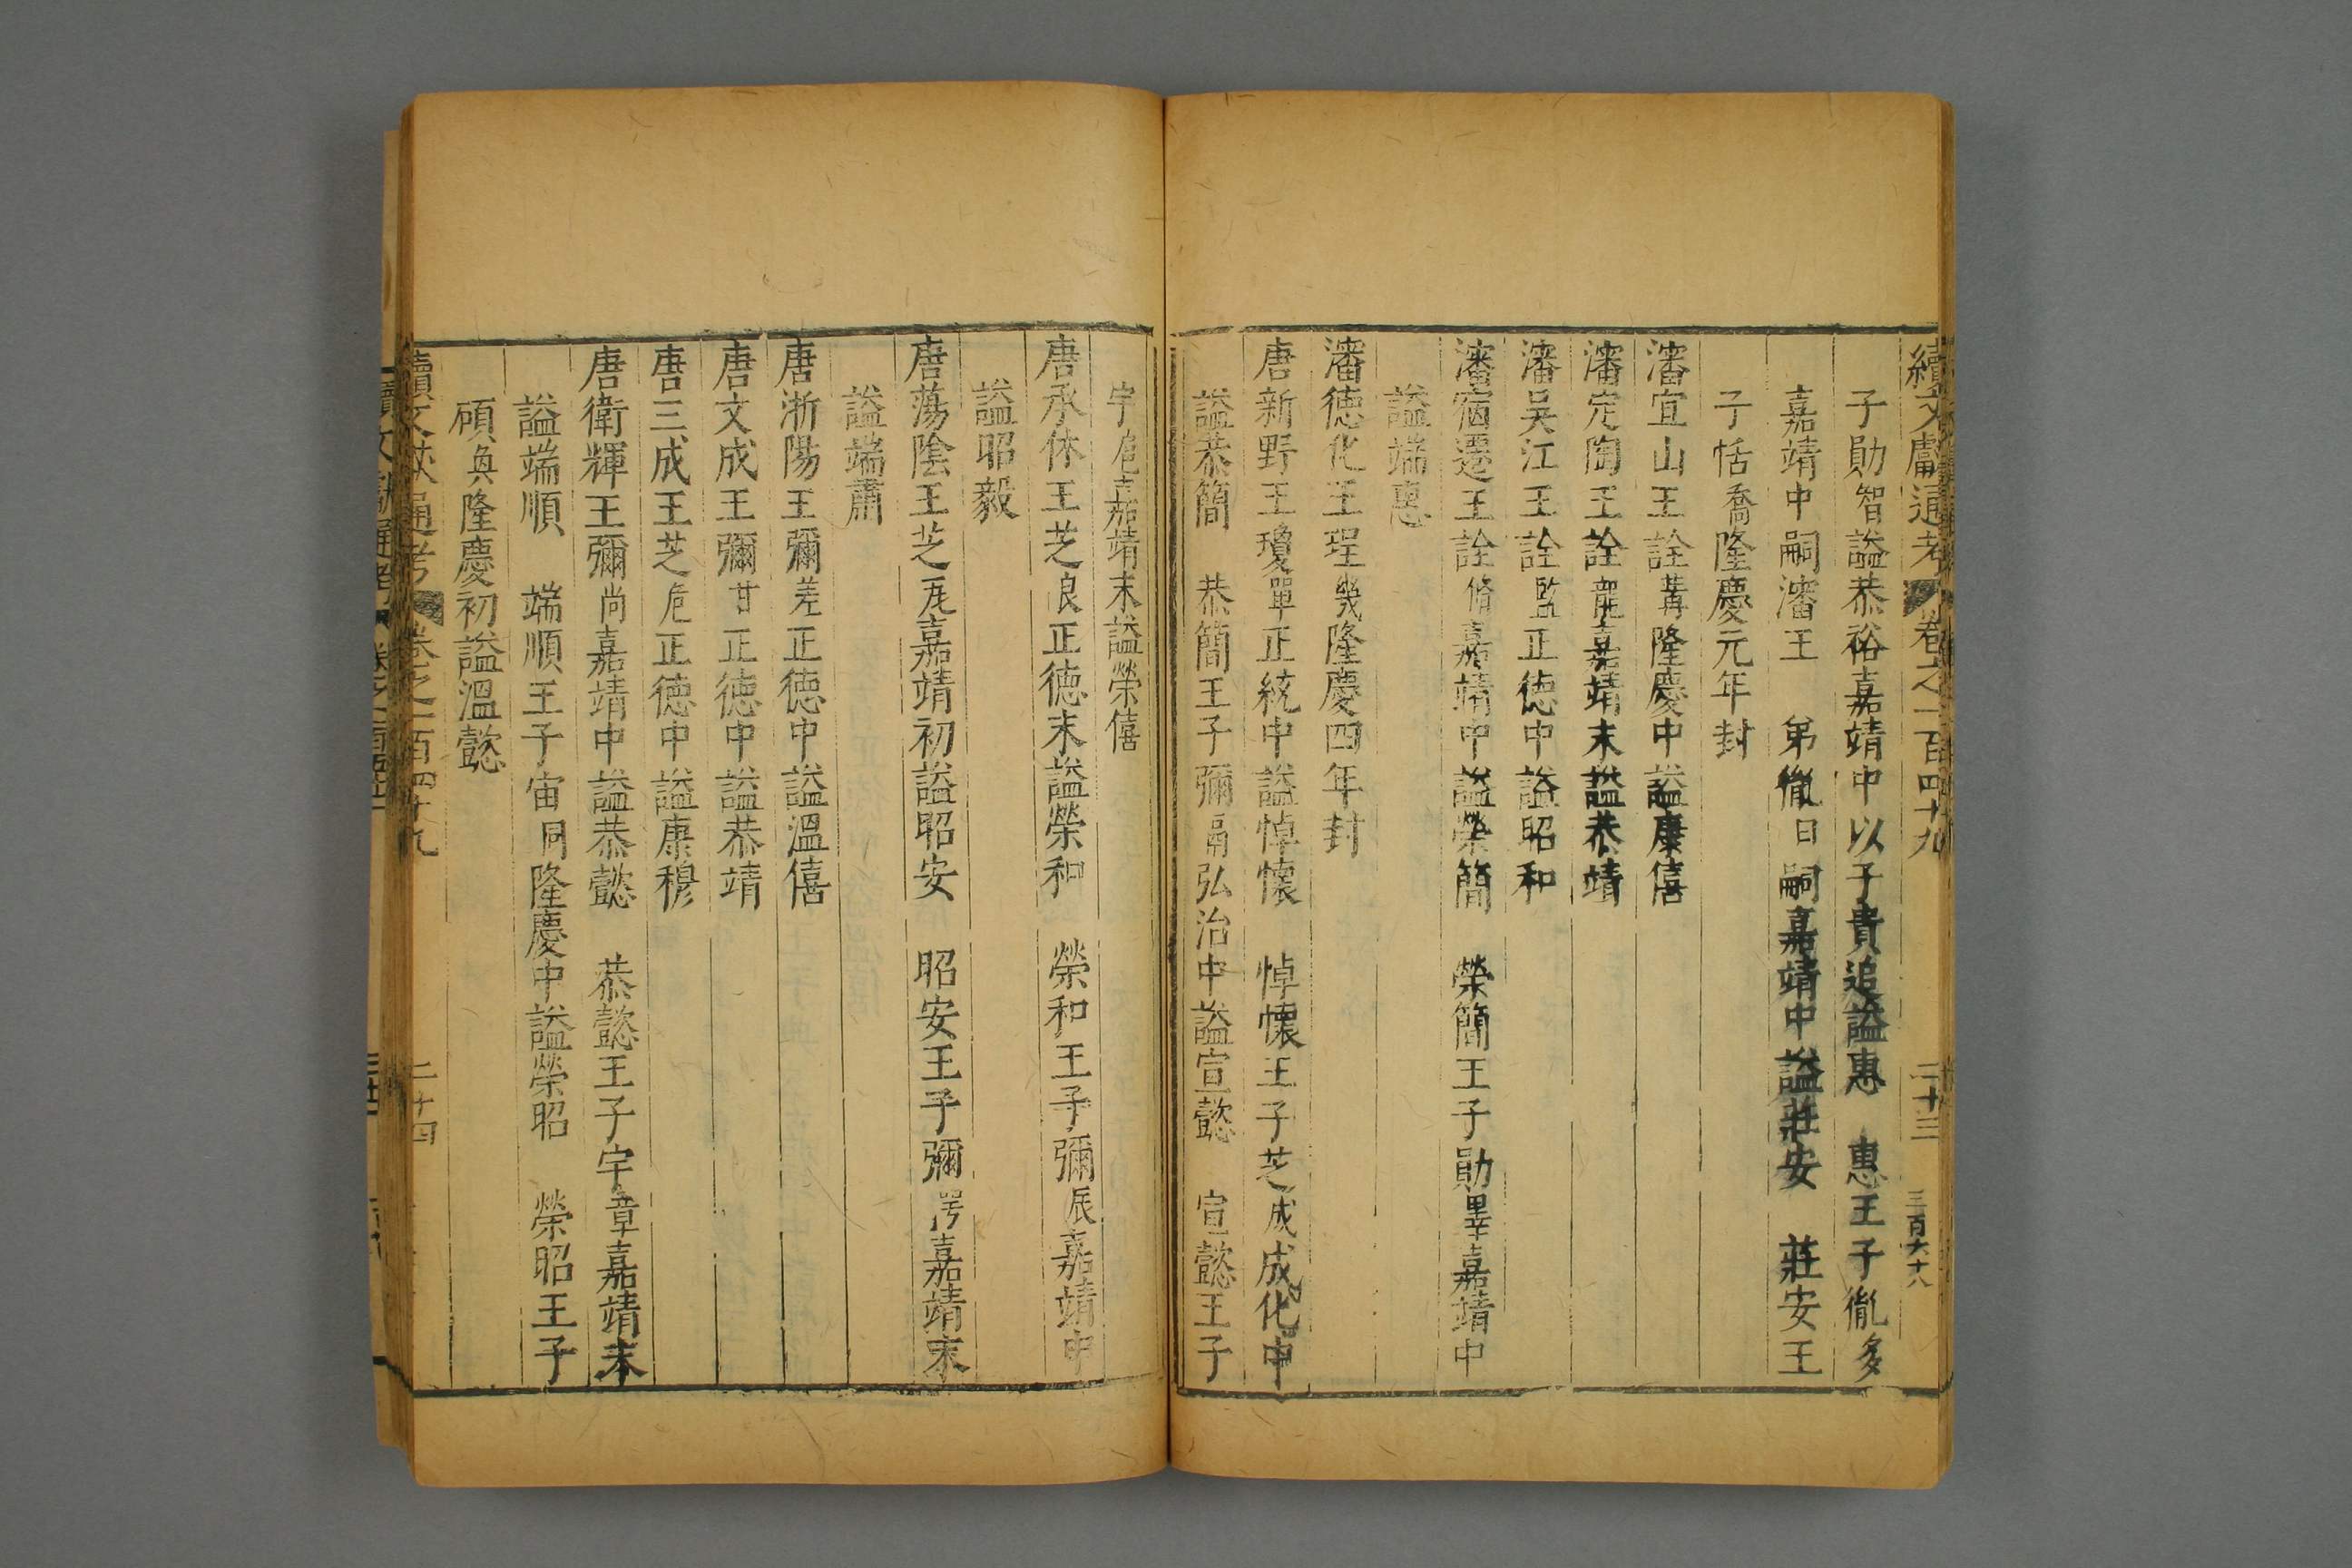 續文獻通考 卷之一百四十九 二十三 三百六十八
子勛智謚恭裕嘉靖中以子貴追謚惠 惠王子㣧多
嘉靖中嗣瀋王 弟㣧日嗣嘉靖中謚莊安 莊安王
子恬喬隆慶元年封
瀋宜山王詮隆慶中謚康僖
瀋定陶王詮嘉靖末謚恭靖
瀋吳江王詮正德中謚昭和
瀋宿遷王詮嘉靖中謚榮簡 榮簡王子勛嘉靖中
謚端惠
瀋德化王珵隆慶四年封
唐新野王瓊正統中謚悼懷 悼懷王子芝成化中
謚恭簡 恭簡王子彌弘治中謚宣懿 宣懿王子
宇嘉靖末謚榮僖
唐承休王芝垠正德末謚榮和 榮和王子彌嘉靖中
謚昭毅
唐蕩陰王芝嘉靖初謚昭安 昭安王子彌嘉靖末
謚端肅
唐浙陽王彌正德中謚溫僖
唐文成王彌正德中謚恭靖
唐三成王芝正德中謚康穆
唐衛輝王彌嘉靖中謚恭懿 恭懿王子宇嘉靖末
謚端順 端順王子宙隆慶中謚榮昭 榮昭王子
碩隆慶初謚溫懿
續文獻通考 卷之一百四十九 二十四